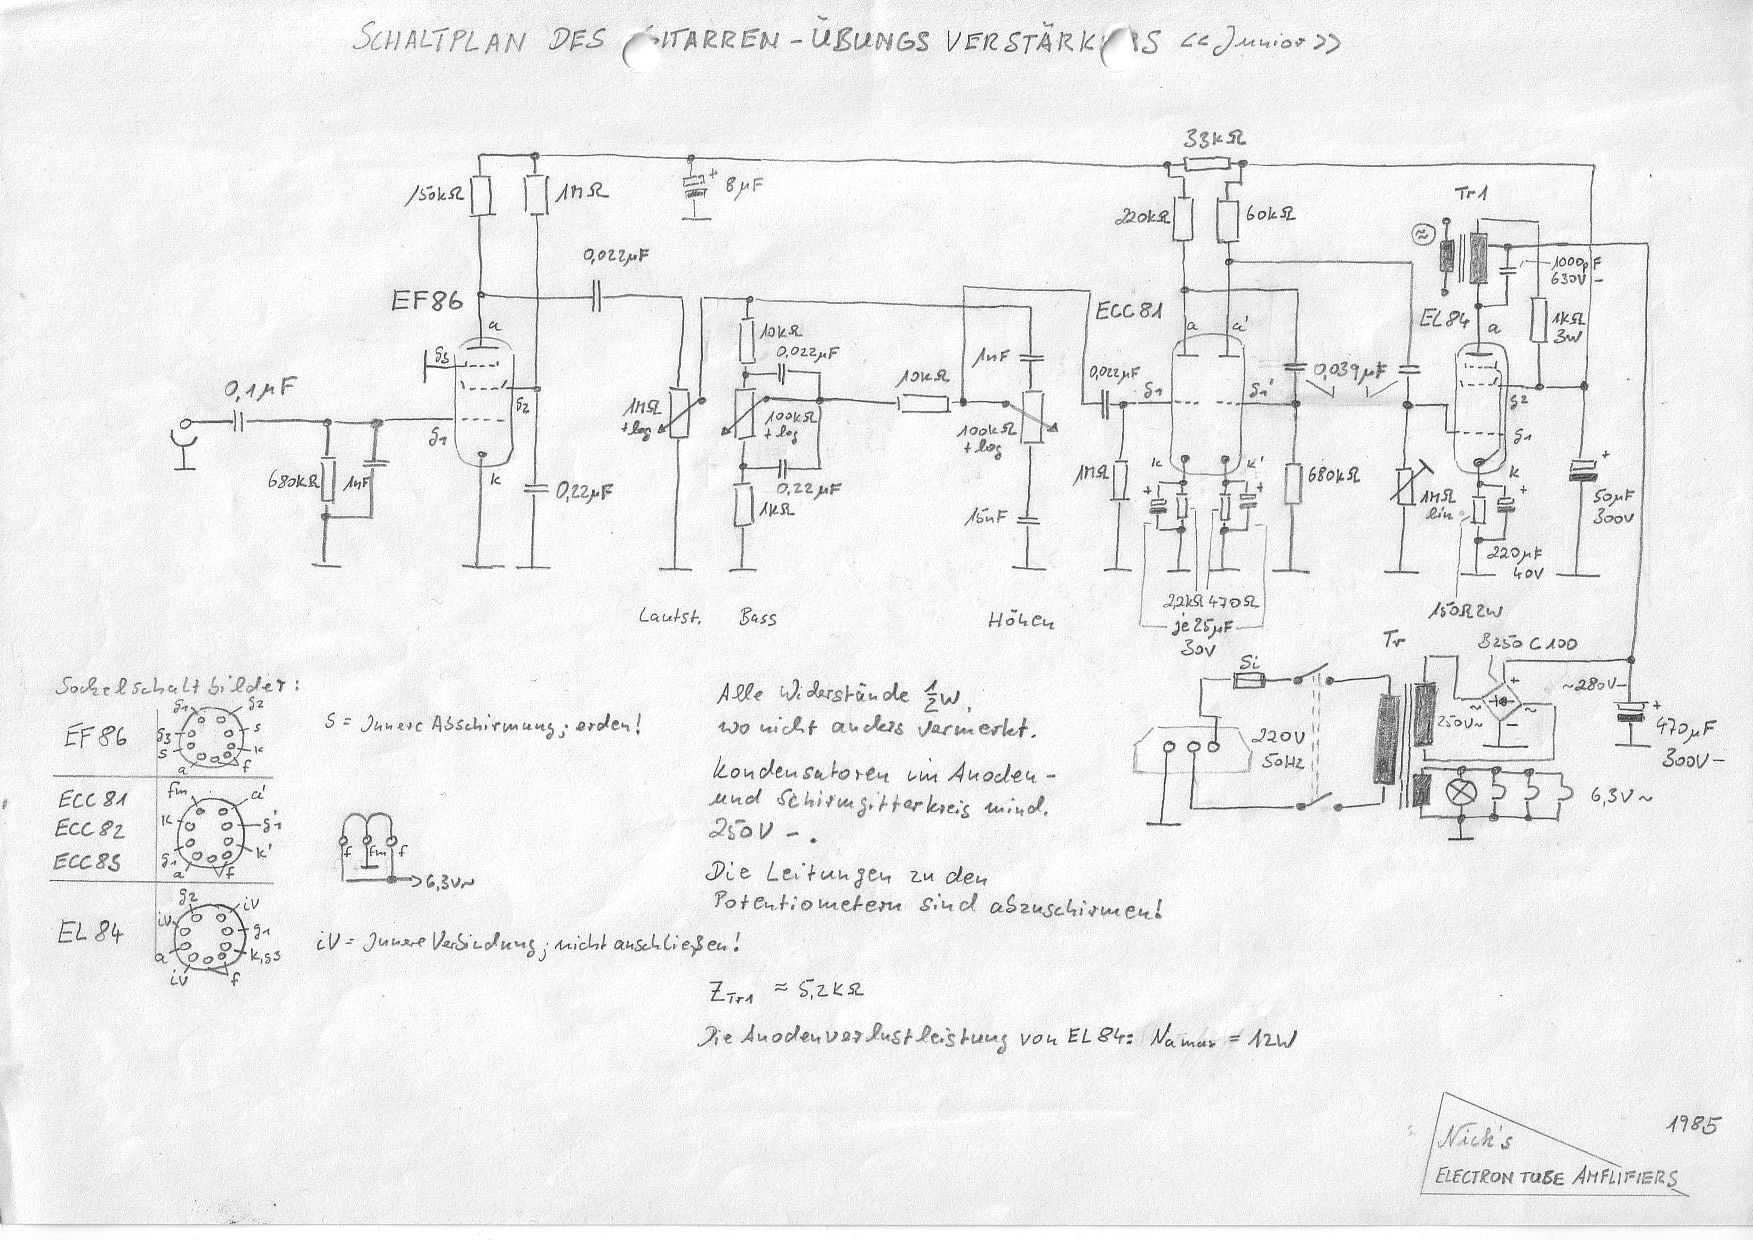 SCHALTPLAN DES GITARREN-ÜBUNGSVERSTÄRKERS <<Junior>>
33kΩ
150kΩ
1MΩ
8µF
+
220kΩ
60kΩ
Tr1
≈
1000pF
630V-
0,022µF
EF86
ECC81
EL84
1kΩ
3W
a
a
a'
a
g3
g2
g1
k
0,1µF
680kΩ
1nF
0,22µF
1MΩ
+log
10kΩ
0,022µF
100kΩ
+log
0,22µF
1kΩ
10kΩ
1nF
100kΩ
+log
15nF
0,022µF
g1
g1'
0,039µF
g2
g1
1MΩ
k
k'
+
+
680kΩ
1MΩ
lin
k
+
220µF
40V
+
50µF
300V
2,2kΩ 470Ω
je 25µF
30V
150Ω 2W
Lautst.
Bass
Höhen
Si
Tr
B250 C100
220V
50Hz
250V~
+
~
~
-
~280V-
+
470µF
300V-
6,3V~
Sockelschaltbilder:
EF86
g1
g2
g3
s
s
k
a
f
S = Innere Abschirmung; erden!
ECC81
ECC82
ECC83
fm
a'
k
g1'
g1
k'
a
f
f
fm
f
6,3V~
EL84
g2
iV
iV
g1
a
k,s3
iV
f
iV = Innere Verbindung; nicht anschließen!
Alle Widerstände ½W,
wo nicht anders vermerkt.
Kondensatoren im Anoden-
und Schirmgitterkreis mind.
250V-.
Die Leitungen zu den
Potentiometern sind abzuschirmen!
ZTr1 ≈ 5,2kΩ
Die Anodenverlustleistung von EL84: Namax = 12W
1985
Nick's
ELECTRON TUBE AMPLIFIERS